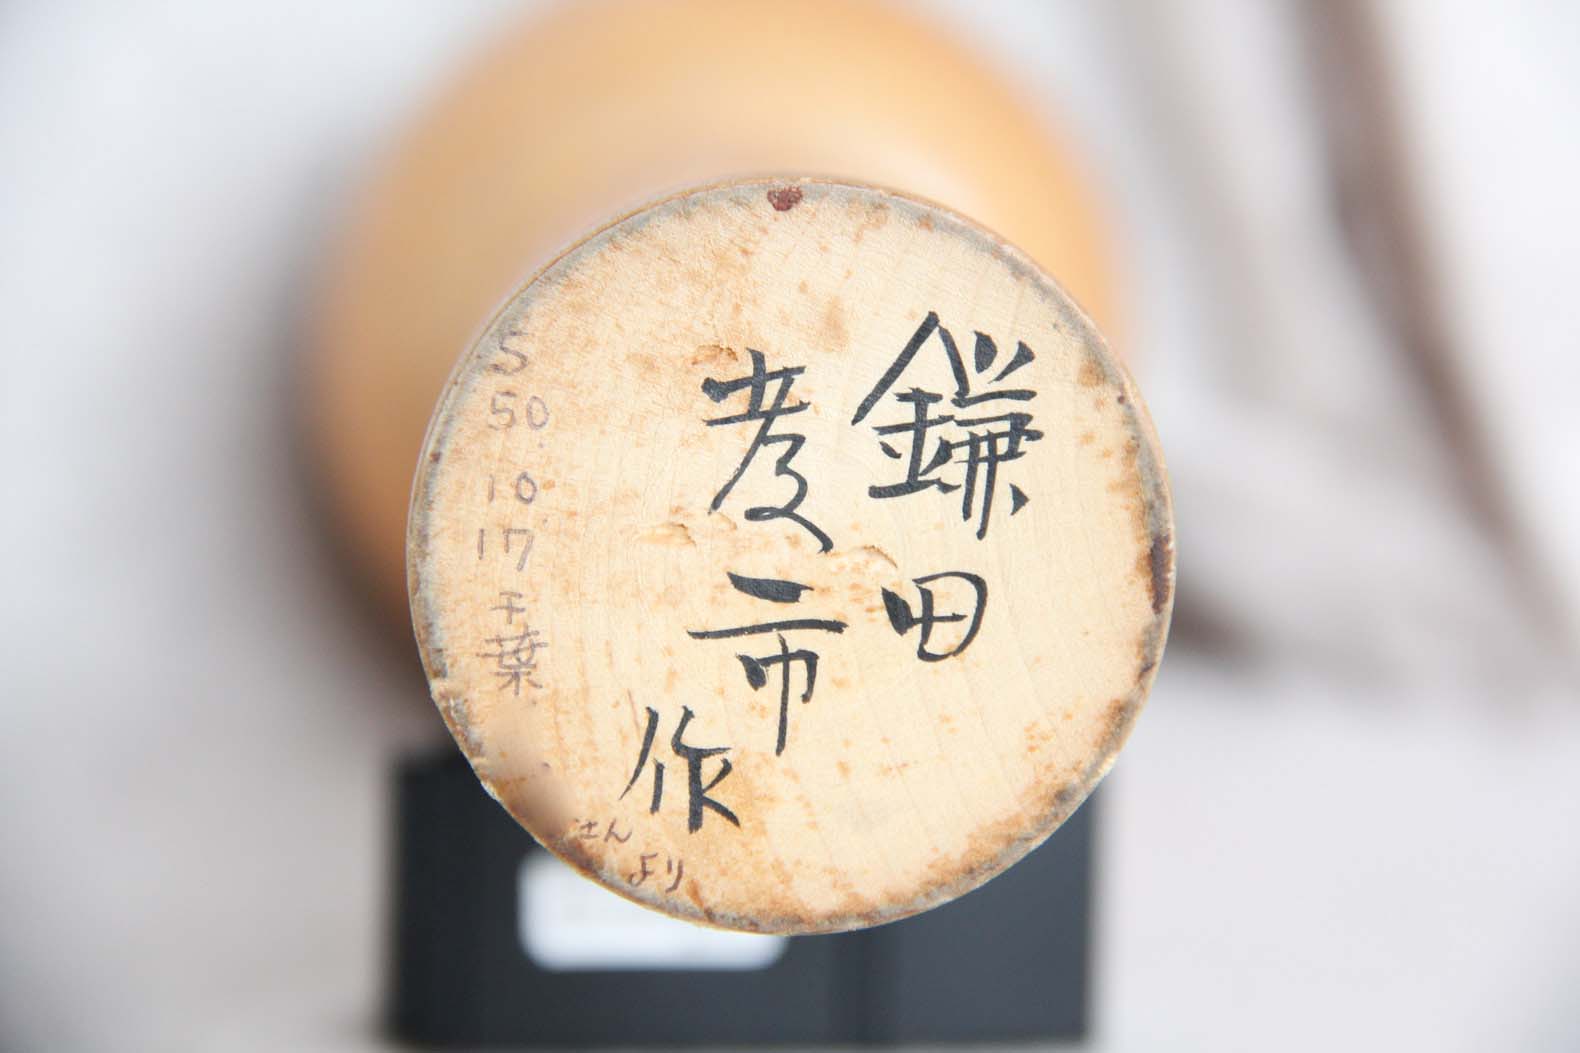 鎌田
孝市
作
S
50.
10.
17
千葉
さん
より